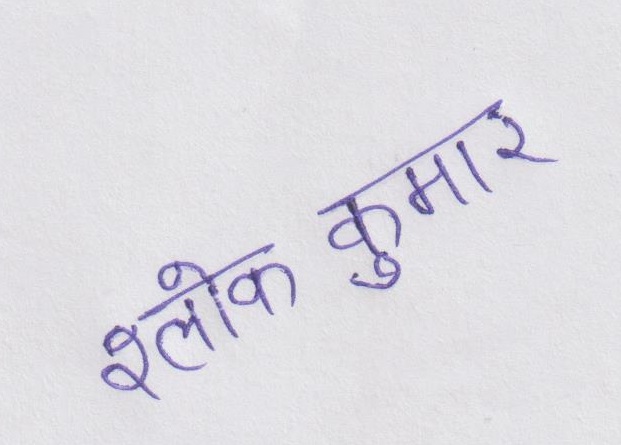 श्लोक कुमार